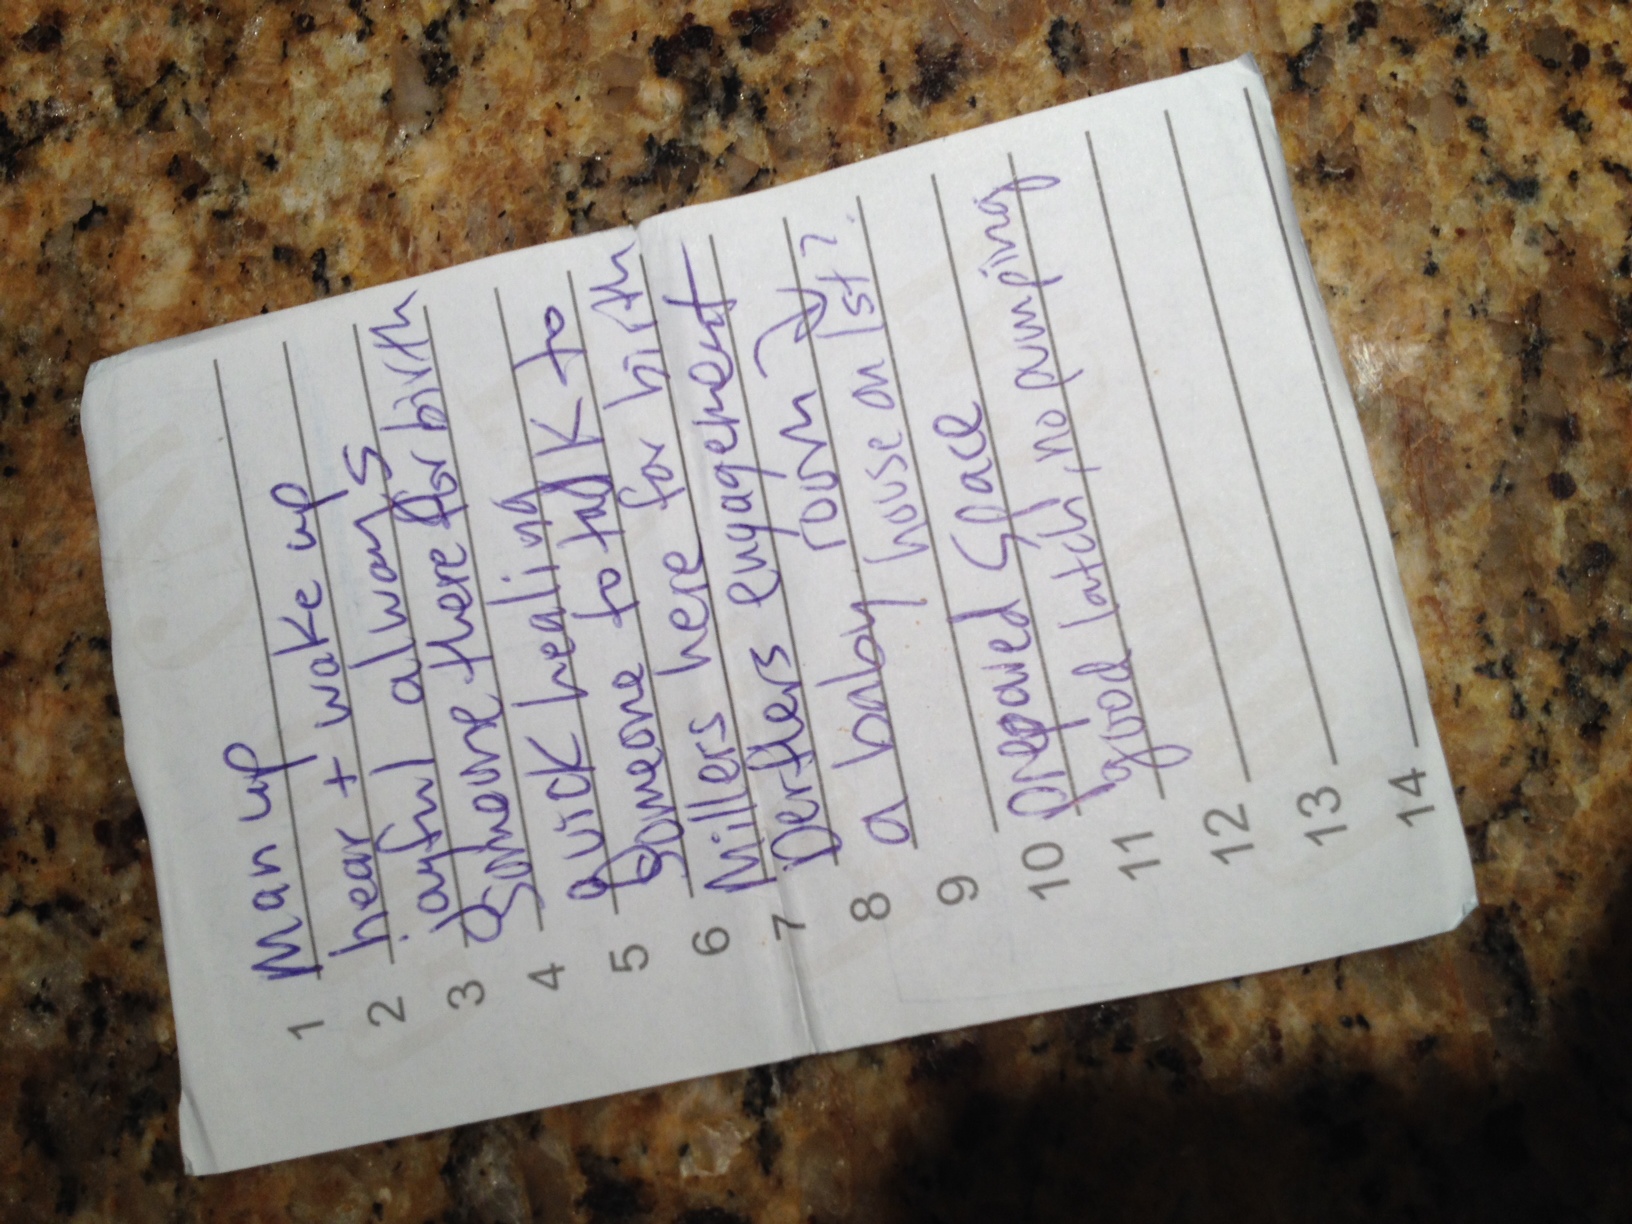 1 Man up
2 hear + wake up
3 joyful always
4 Someone there for birth
5 quick healing
6 Someone to talk to
7 Millers here for birth
8 engagement
a baby rown
house on 1st?
9
10 prepared space
11 good latch, no pumping
12
13
14